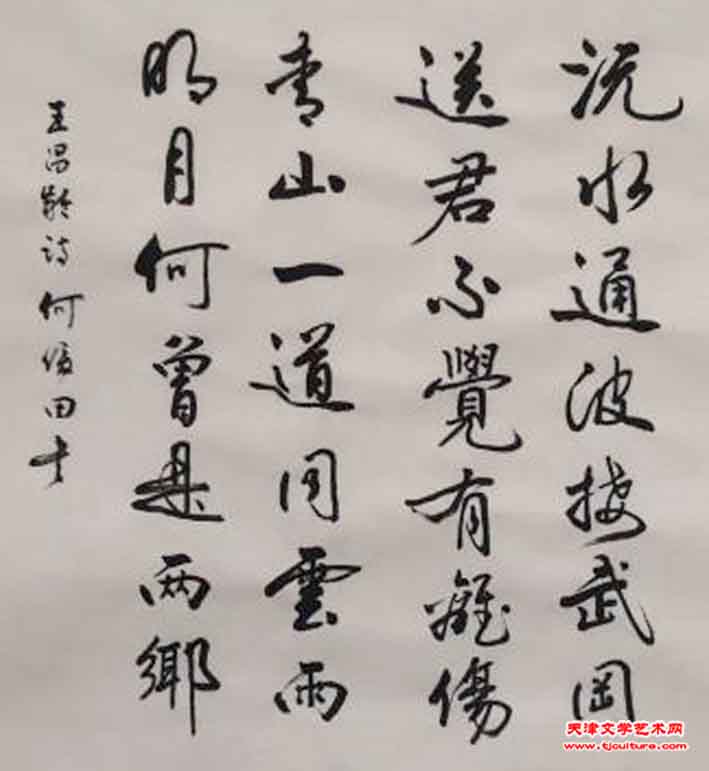 沅水通波接武岡
送君不覺有離傷
青山一道同雲雨
明月何曾是两鄉
王昌齡诗 何俊田书
天津文学艺术网
www.tjculture.com